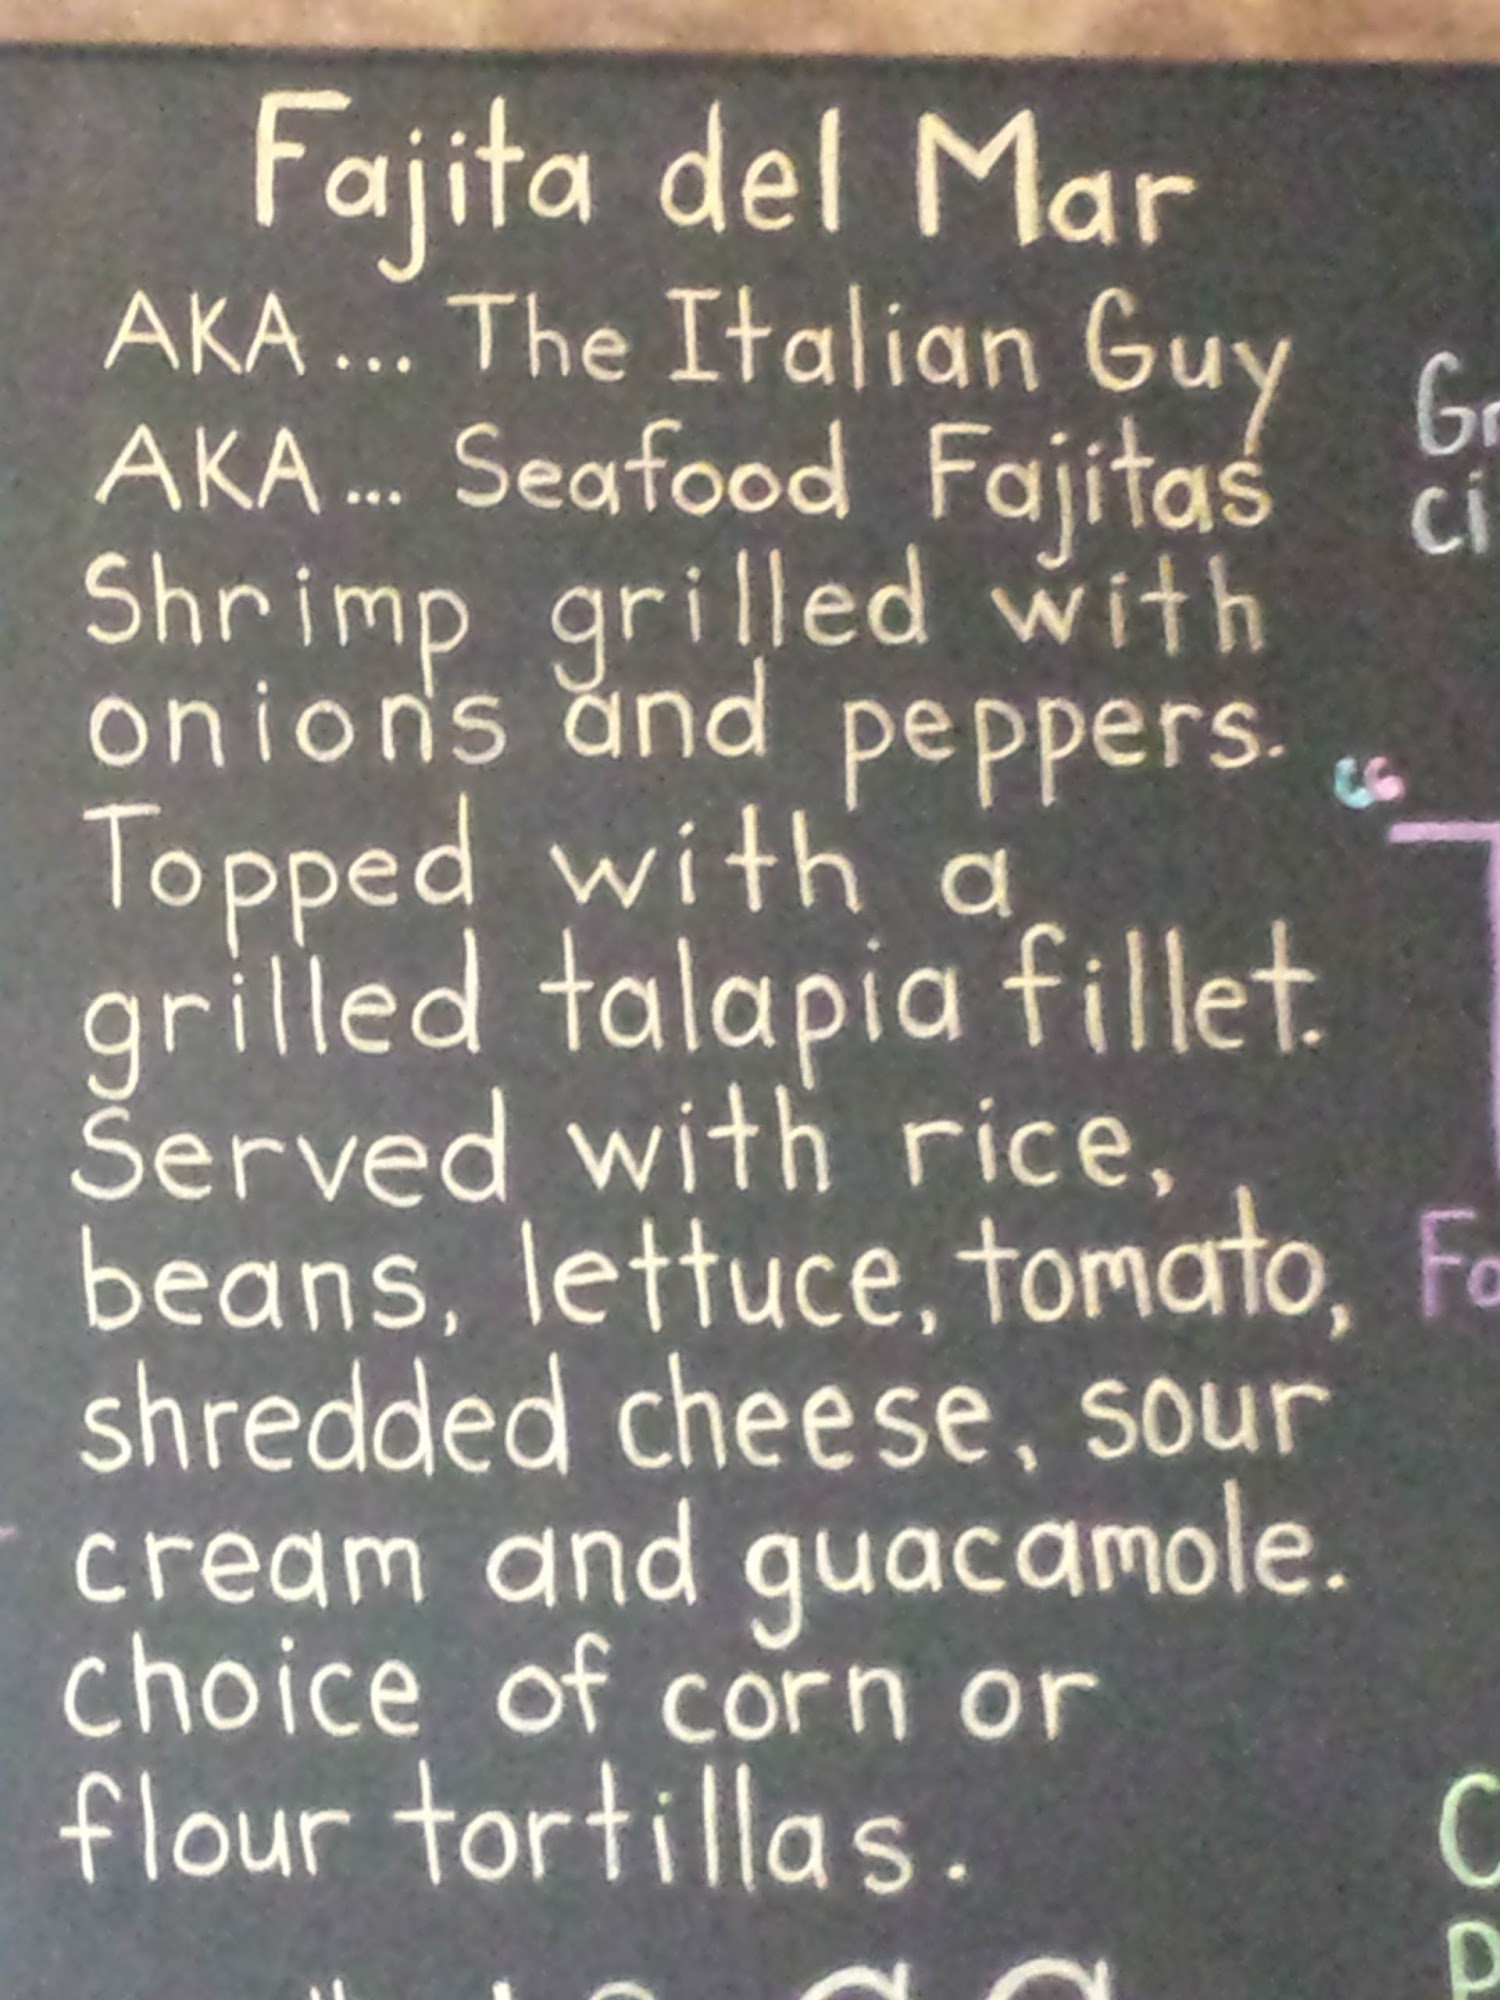 Fajita del Mar
AKA... The Italian Guy
AKA... Seafood Fajitas
Shrimp grilled with
onions and peppers.
Topped with a
grilled talapia fillet.
Served with rice,
beans, lettuce, tomato,
shredded cheese, sour
cream and guacamole.
choice of corn or
flour tortillas.